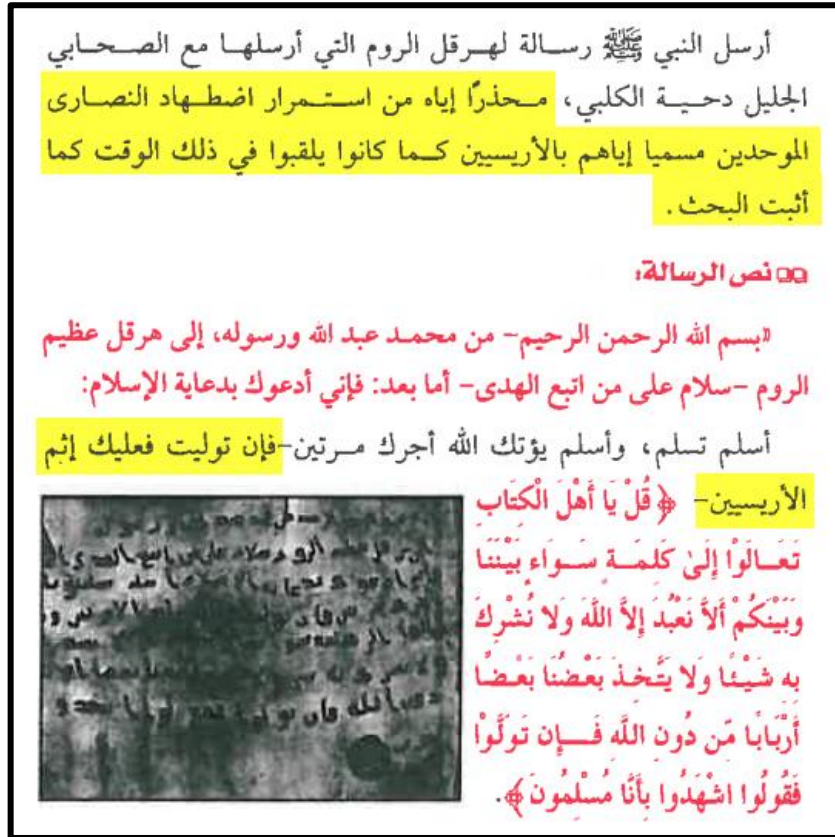 أرسل النبي ﷺ رسالة لهرقل الروم التي أرسلها مع الصحابي
الجليل دحية الكلبي، محذرًا إياه من استمرار اضطهاد النصارى
الموحدين مسميا إياهم بالأريسيين كما كانوا يلقبوا في ذلك الوقت كما
أثبت البحث.
نص الرسالة:
«بسم الله الرحمن الرحيم- من محمد عبد الله ورسوله، إلى هرقل عظيم
الروم -سلام على من اتبع الهدى- أما بعد: فإني أدعوك بدعاية الإسلام:
أسلم تسلم، وأسلم يؤتك الله أجرك مرتين-فإن توليت فعليك إثم
الأريسيين- ﴿ قُلْ يَا أَهْلَ الْكِتَابِ
تَعَالَوْا إِلَىٰ كَلِمَةٍ سَوَاءٍ بَيْنَنَا
وَبَيْنَكُمْ أَلاَّ نَعْبُدَ إِلاَّ اللَّهَ وَلا نُشْرِكَ
بِهِ شَيْئًا وَلا يَتَّخِذَ بَعْضُنَا بَعْضًا
أَرْبَابًا مِّن دُونِ اللَّهِ فَإِن تَوَلَّوْا
فَقُولُوا اشْهَدُوا بِأَنَّا مُسْلِمُونَ ﴾.